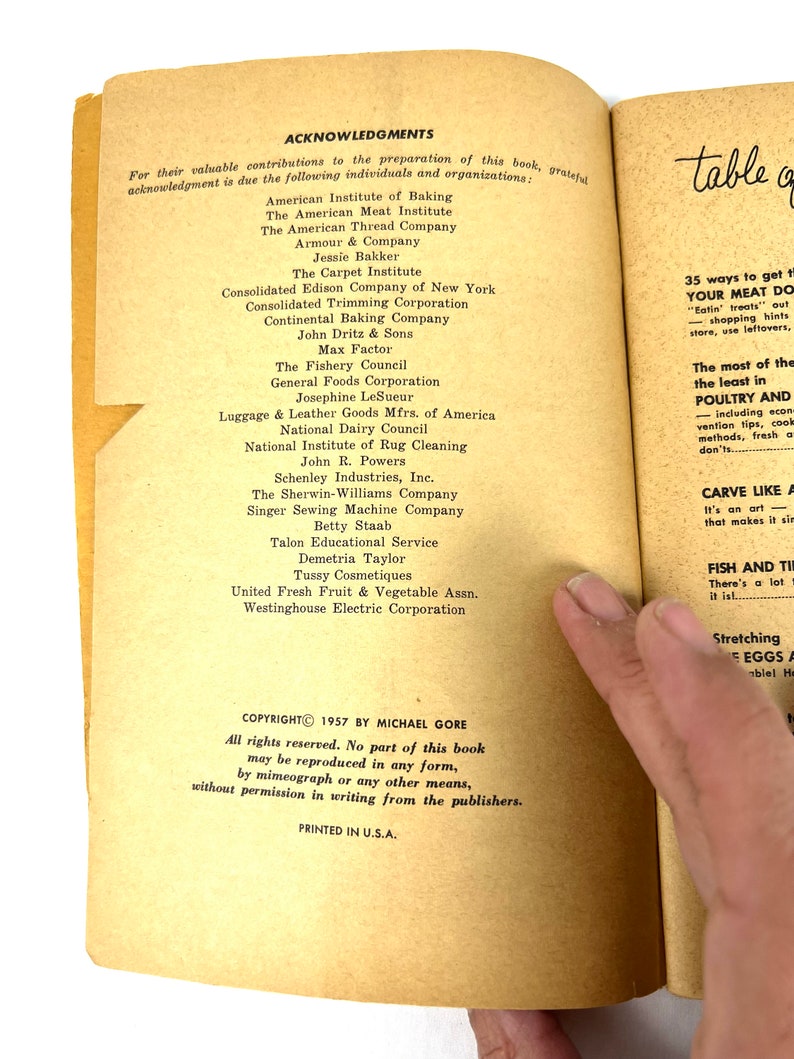 ACKNOWLEDGMENTS
For their valuable contributions to the preparation of this book, grateful
acknowledgment is due the following individuals and organizations:
American Institute of Baking
The American Meat Institute
The American Thread Company
Armour & Company
Jessie Bakker
The Carpet Institute
Consolidated Edison Company of New York
Consolidated Trimming Corporation
Continental Baking Company
John Dritz & Sons
Max Factor
The Fishery Council
General Foods Corporation
Josephine LeSueur
Luggage & Leather Goods Mfrs. of America
National Dairy Council
National Institute of Rug Cleaning
John R. Powers
Schenley Industries, Inc.
The Sherwin-Williams Company
Singer Sewing Machine Company
Betty Staab
Talon Educational Service
Demetria Taylor
Tussy Cosmetiques
United Fresh Fruit & Vegetable Assn.
Westinghouse Electric Corporation
COPYRIGHT© 1957 BY MICHAEL GORE
All rights reserved. No part of this book
may be reproduced in any form,
by mimeograph or any other means,
without permission in writing from the publishers.
PRINTED IN U.S.A.
table
35 ways to get
YOUR MEAT
"Eatin' treats" out
— shopping hints
store, use leftovers,
The most of the
the least in
POULTRY AND
— including
vention tips,
methods, fresh
don'ts
CARVE LIKE
It's an art —
that makes it
FISH AND
There's a lot
it is!
Stretching
EGGS